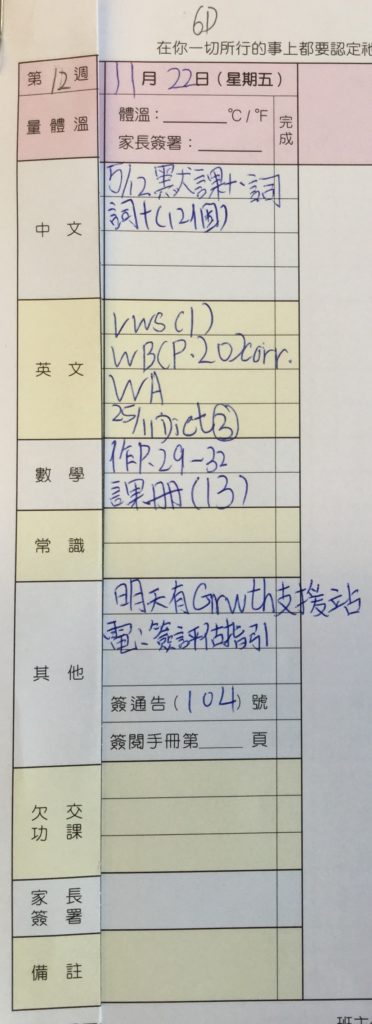 6D
在你一切所行的事上都要認定祂
第12週 11月22日(星期五)
量體溫 體溫：______°C/°F 完成
家長簽署：______
中文 5/12默課十、詞
詞十(12個)
英文 VWS(1)
WB(P.20)corr.
WA
25/11Dict③
數學 作P.29-32
課冊(13)
常識
其他 明天有Growth支援站
電：簽評估指引
簽通告(104)號
簽閱手冊第____頁
欠交功課
家長簽署
備註